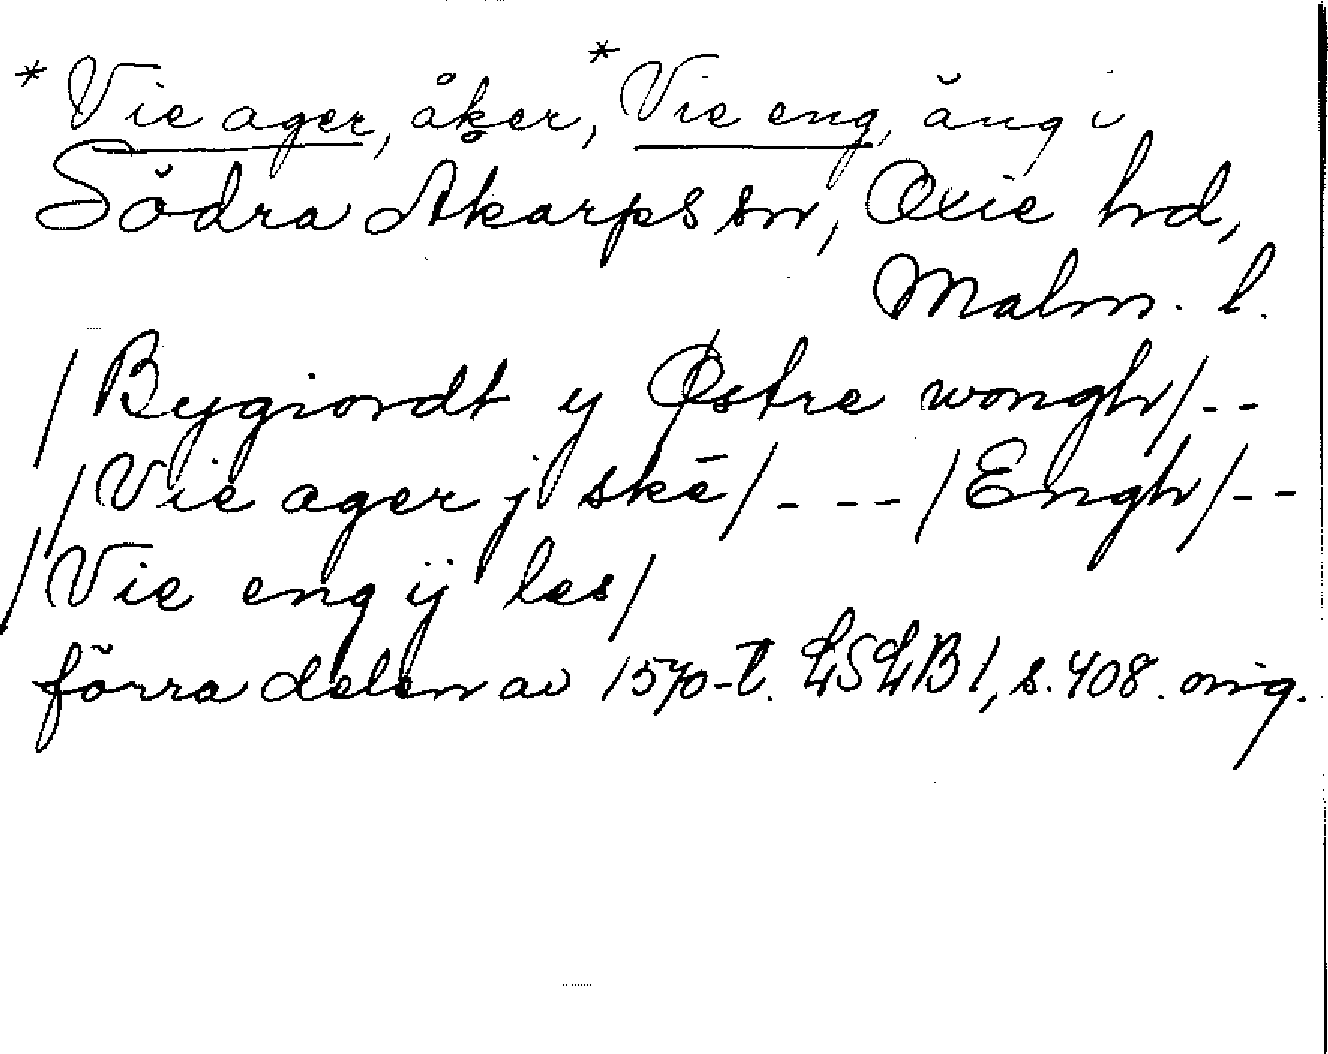 * Vie ager, åker, * Vie eng, äng i
Södra Åkarps sn, Oxie hd,
Malm. l.
/Bygiordt y Østre wongh/--
/Vie ager j skē/---/Engh/--
/Vie eng ij les/
förra delen av 1570-t. LSLB1, s. 408. orig.